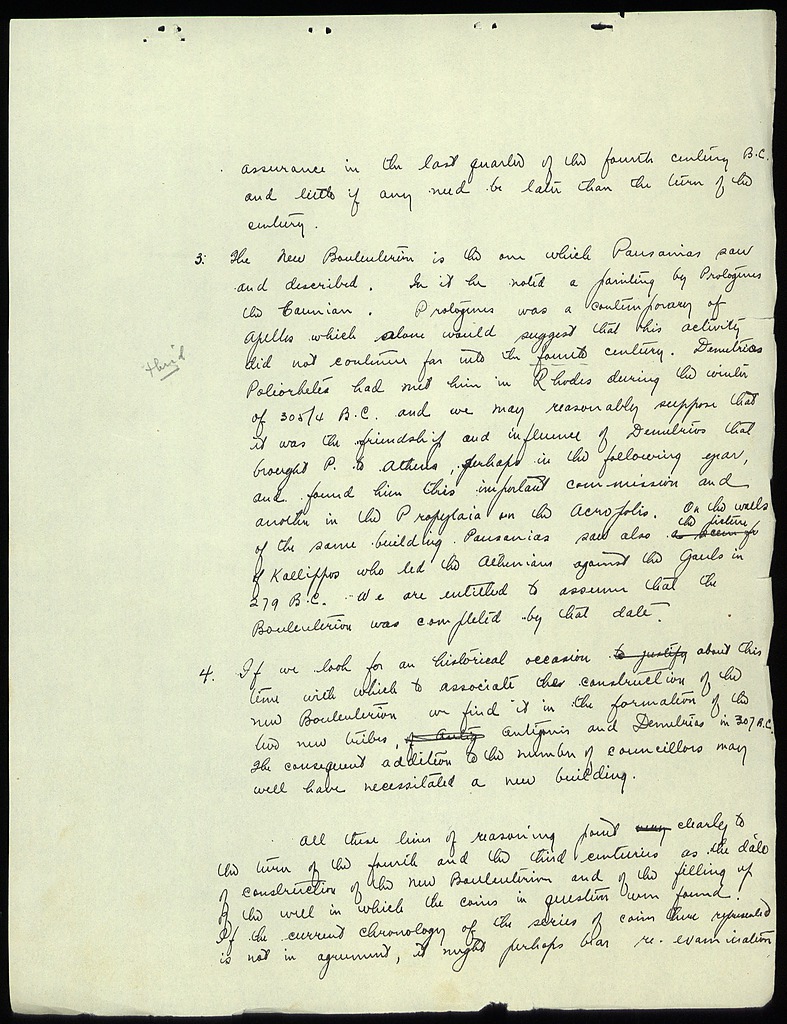 assurance in the last quarter of the fourth century B.C.
and little if any need be later than the turn of the
century.
3. The New Bouleuterion is the one which Pausanias saw
and described. In it he noted a painting by Protogenes
the Caunian. Protogenes was a contemporary of
Apelles which alone would suggest that his activity
did not continue far into the fourth century. Demetrios
third
Poliorketes had met him in Rhodes during the winter
of 305/4 B.C. and we may reasonably suppose that
it was the friendship and influence of Demetrios that
brought P. to Athens, perhaps in the following year,
and found him this important commission and
another in the Propylaia on the Acropolis. On the walls
of the same building Pausanias saw also the picture
of Kallippos who led the Athenians against the Gauls in
279 B.C. We are entitled to assume that the
Bouleuterion was completed by that date.
4. If we look for an historical occasion to justify about this
time with which to associate the construction of the
new Bouleuterion we find it in the formation of the
two new tribes, Antigonis and Demetrias in 307 B.C.
The consequent addition to the number of councillors may
well have necessitated a new building.
All these lines of reasoning point clearly to
the turn of the fourth and the third centuries as the date
of construction of the new Bouleuterion and of the filling up
of the well in which the coins in question were found.
If the current chronology of the series of coins there represented
is not in agreement, it might perhaps bear re-examination